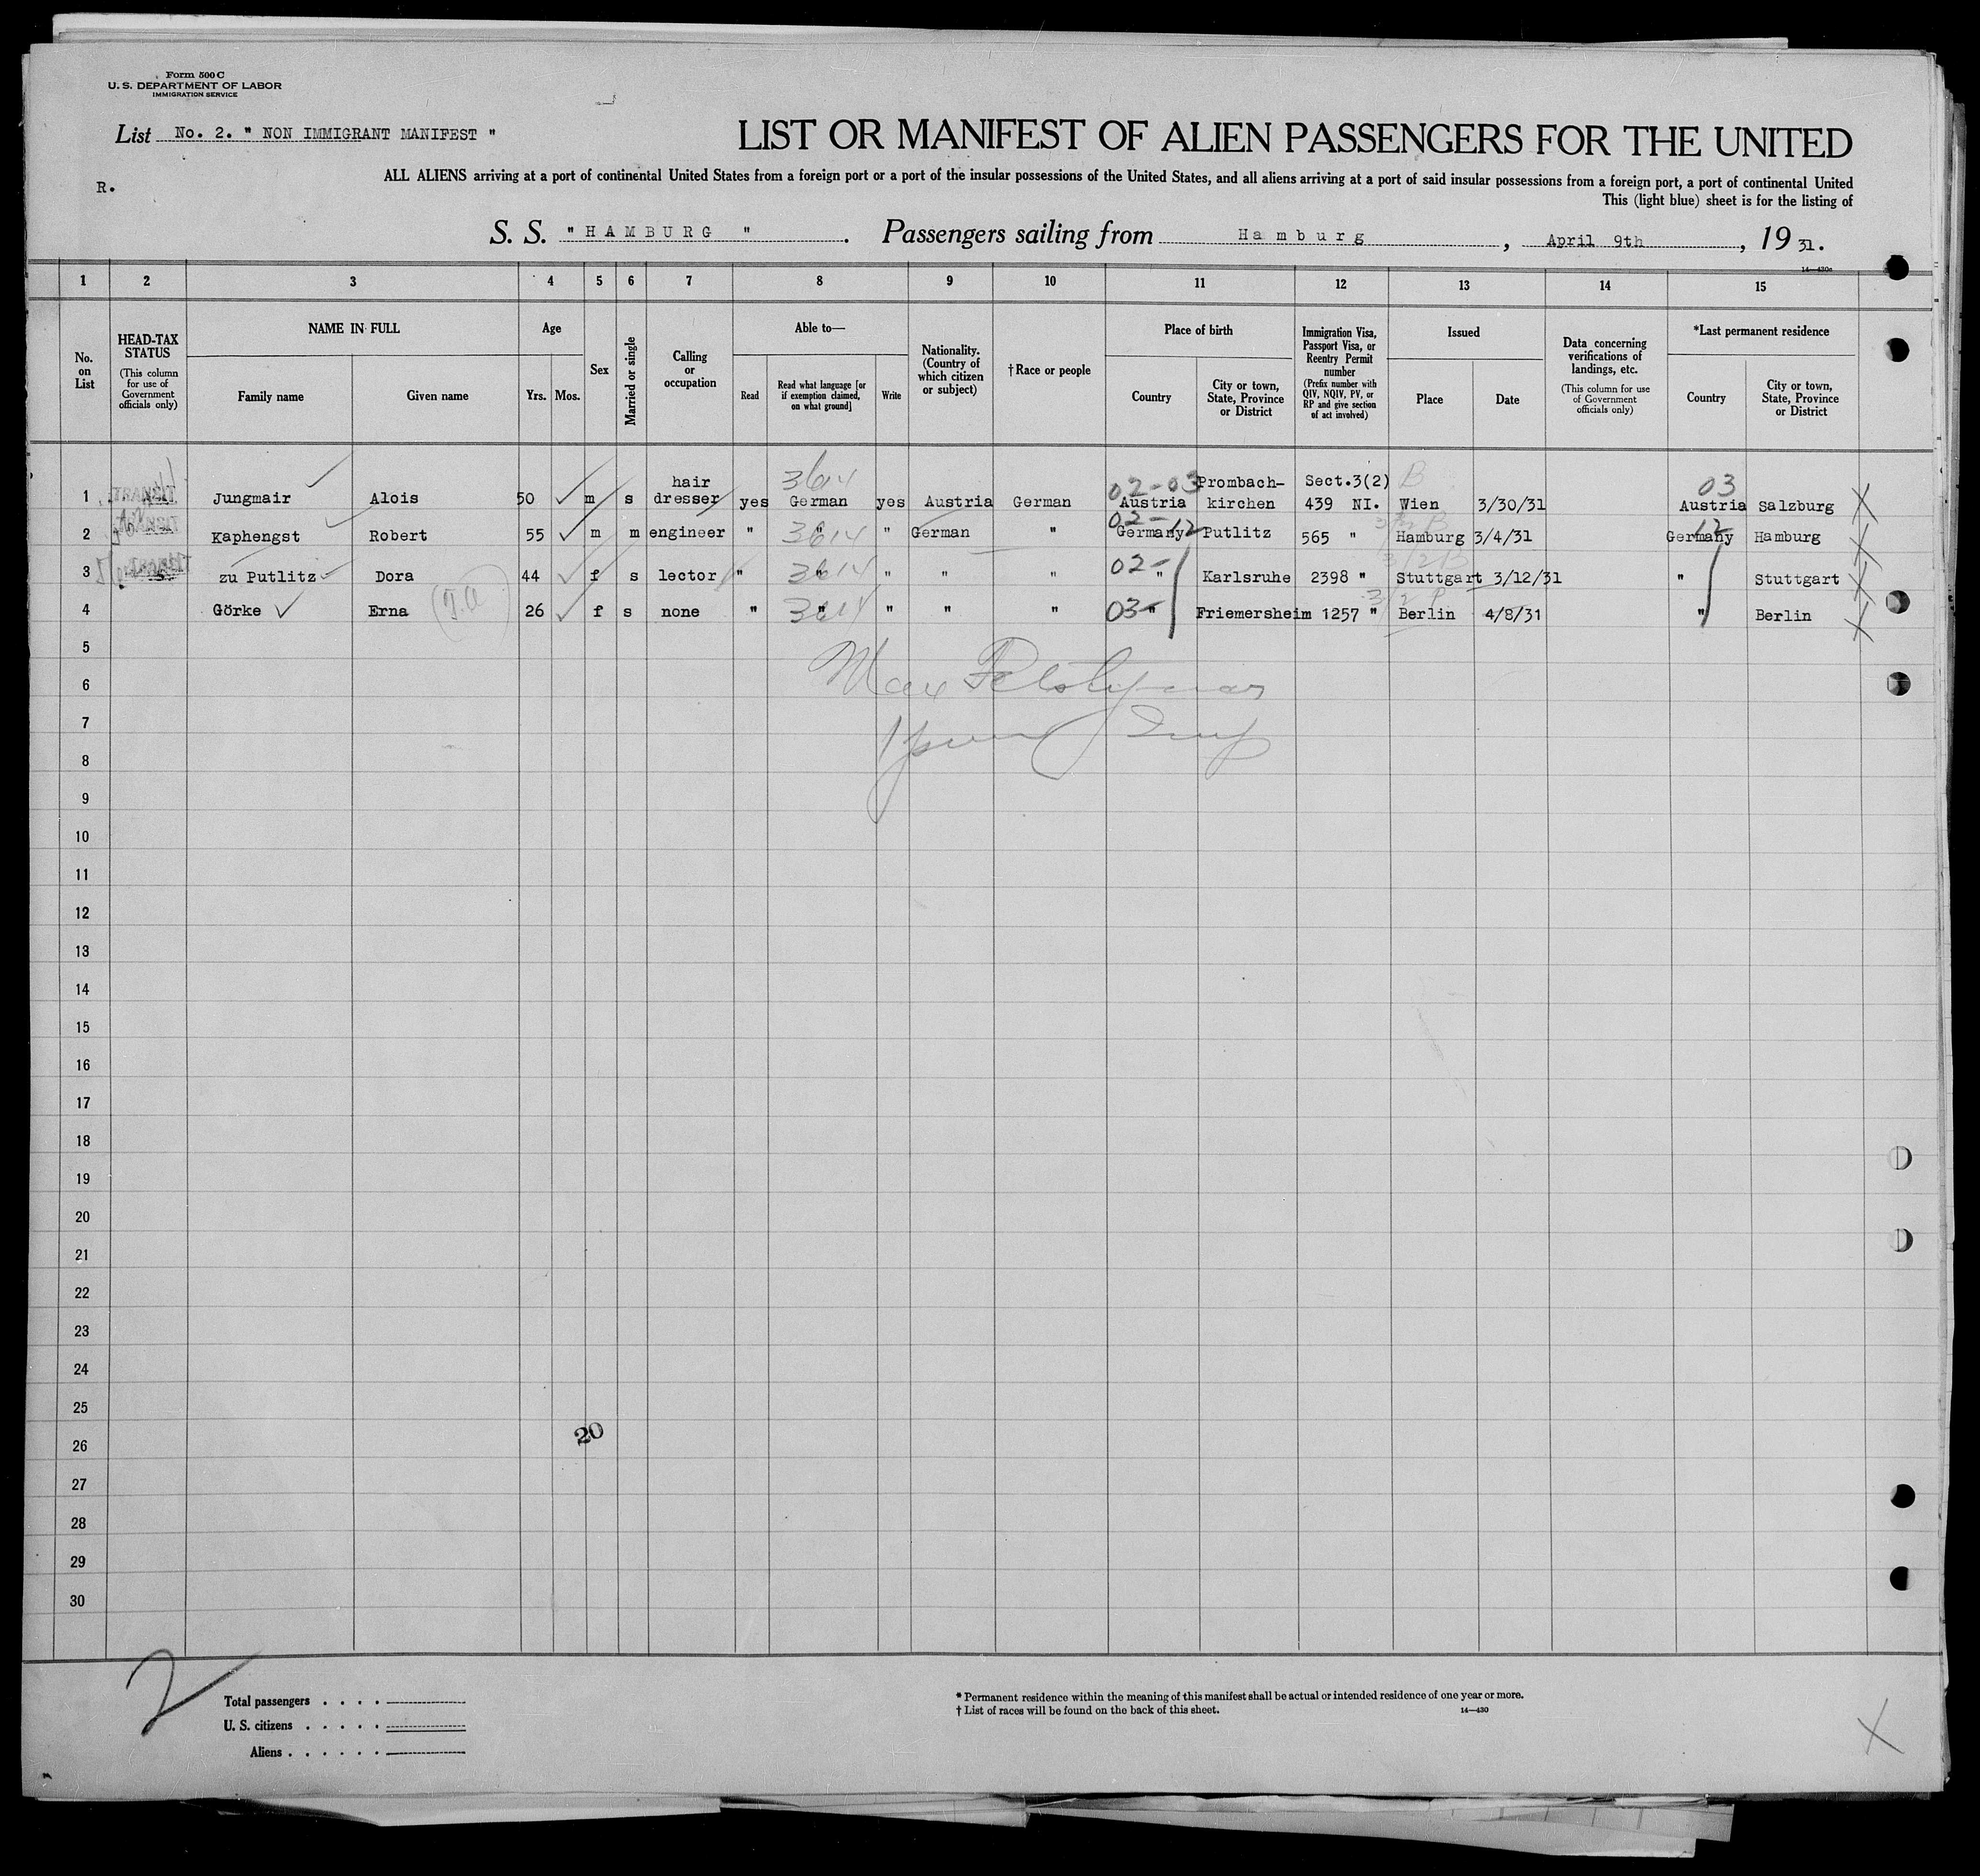 Form 500 C
U. S. DEPARTMENT OF LABOR
IMMIGRATION SERVICE
List No. 2. " NON IMMIGRANT MANIFEST "
LIST OR MANIFEST OF ALIEN PASSENGERS FOR THE UNITED
R.
ALL ALIENS arriving at a port of continental United States from a foreign port or a port of the insular possessions of the United States, and all aliens arriving at a port of said insular possessions from a foreign port, a port of continental United
This (light blue) sheet is for the listing of
S. S. " HAMBURG " . Passengers sailing from Hamburg , April 9th , 19 31.
14—430c
1 2 3 4 5 6 7 8 9 10 11 12 13 14 15
No. on List
HEAD-TAX STATUS
(This column for use of Government officials only)
NAME IN FULL
Family name Given name
Age
Yrs. Mos.
Sex
Married or single
Calling or occupation
Able to—
Read
Read what language [or if exemption claimed, on what ground]
Write
Nationality. (Country of which citizen or subject)
† Race or people
Place of birth
Country
City or town, State, Province or District
Immigration Visa, Passport Visa, or Reentry Permit number
(Prefix number with QIV, NQIV, PV, or RP and give section of act involved)
Issued
Place Date
Data concerning verifications of landings, etc.
(This column for use of Government officials only)
*Last permanent residence
Country
City or town, State, Province or District
3614 02-03 B 03
1 TRANSIT Jungmair Alois 50 m s hair dresser yes German yes Austria German Austria Prombach-kirchen Sect.3(2) 439 NI. Wien 3/30/31 Austria Salzburg
02-12 12
2 Kaphengst Robert 55 m m engineer " 3614 " " German " Germany Putlitz 565 " Hamburg 3/4/31 Germany Hamburg
3 zu Putlitz Dora 44 f s lector " 3614 " " " 02- " Karlsruhe 2398 " Stuttgart 3/12/31 " Stuttgart
4 Görke Erna 26 f s none " 3614 " " " " 03- " Friemersheim 1257 " Berlin 4/8/31 " Berlin
5
6
7
8
9
10
11
12
13
14
15
16
17
18
19
20
21
22
23
24
25
20
26
27
28
29
30
2
Total passengers . . . .
U. S. citizens . . . . .
Aliens . . . . . .
* Permanent residence within the meaning of this manifest shall be actual or intended residence of one year or more.
† List of races will be found on the back of this sheet.
14—430